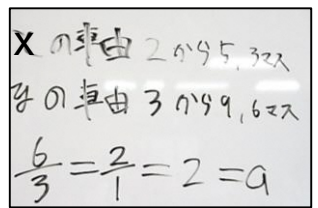 Xの車由2から5,3マス
yの車由3から9,6マス
6/3=2/1=2=a